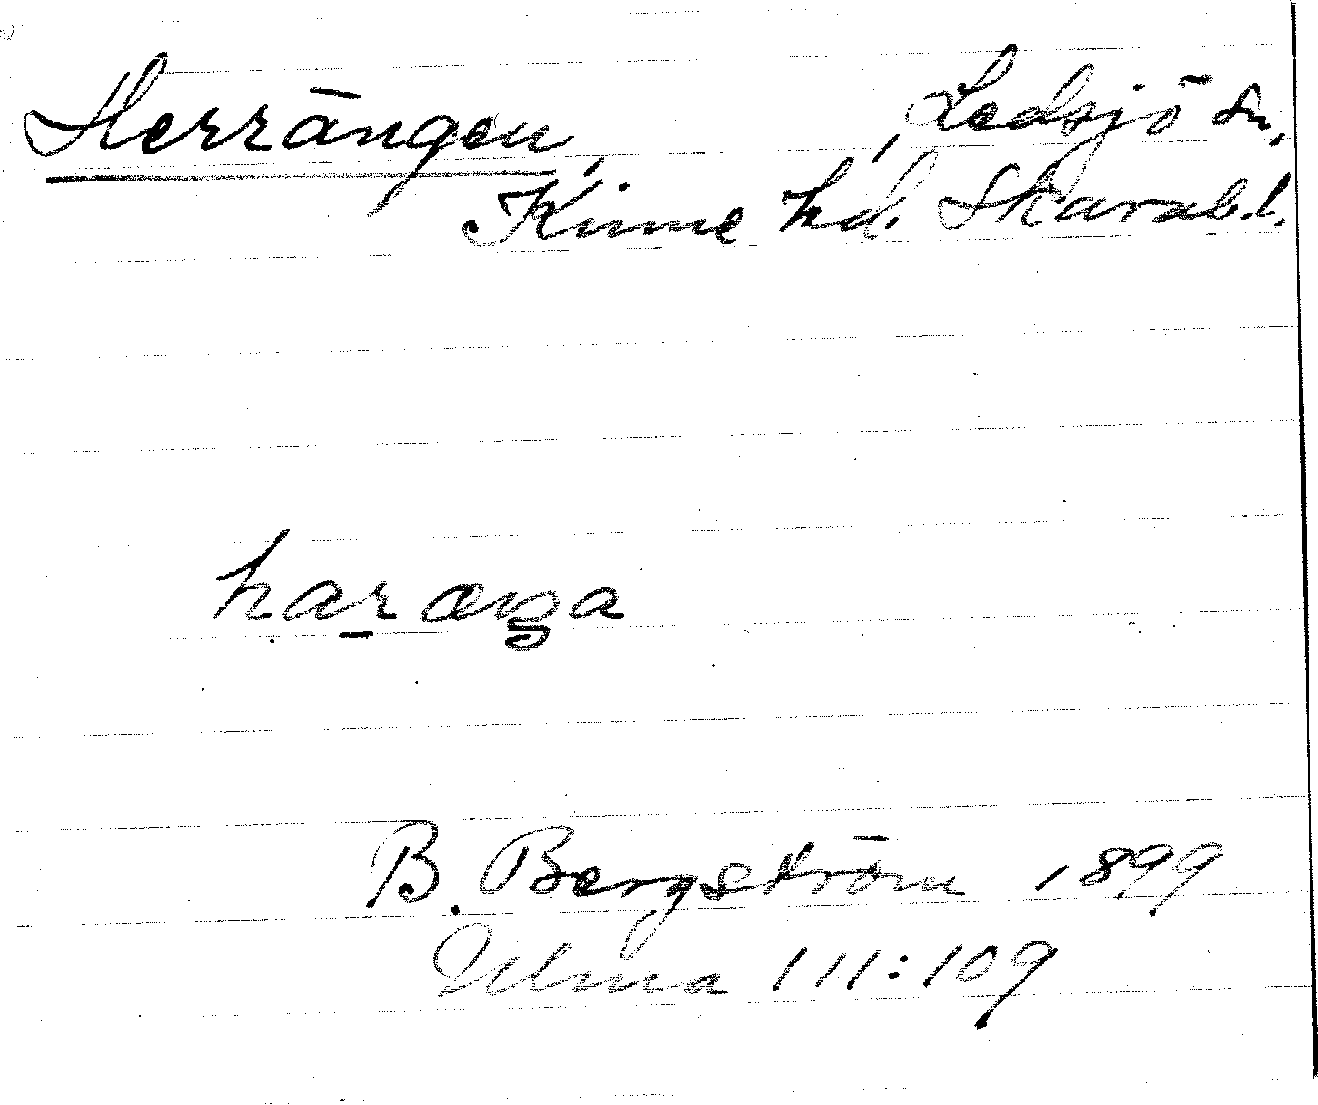 Herrängen, Ledsjö sn,
Kinne hd. Skarab.l.
haræŋa
B. Bergström 1899
Ulma 111:109